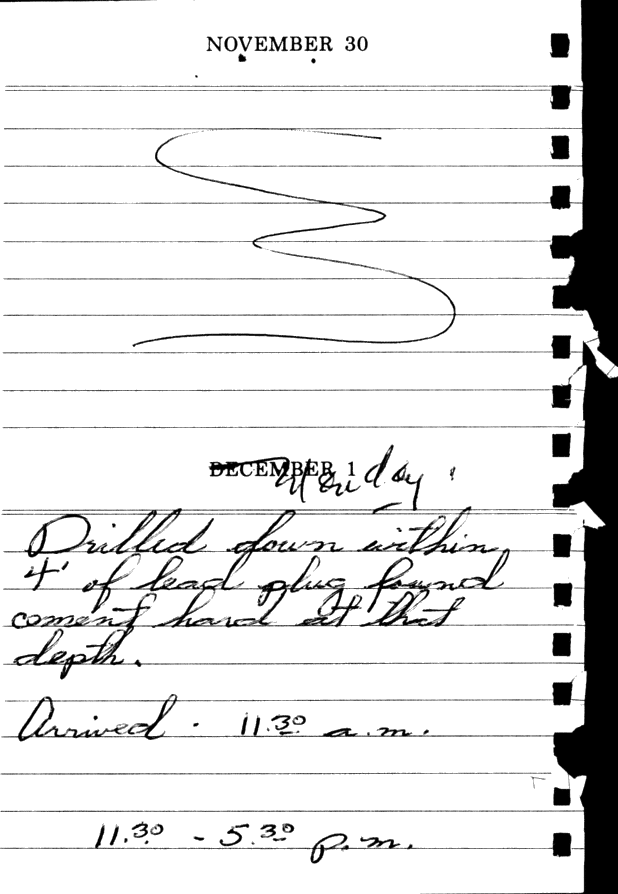 NOVEMBER 30
DECEMBER 1 Monday.
Drilled down within
4' of lead plug found
coment hard at that
depth.
Arrived - 11.30 a.m.
11.30 - 5.30 p.m.